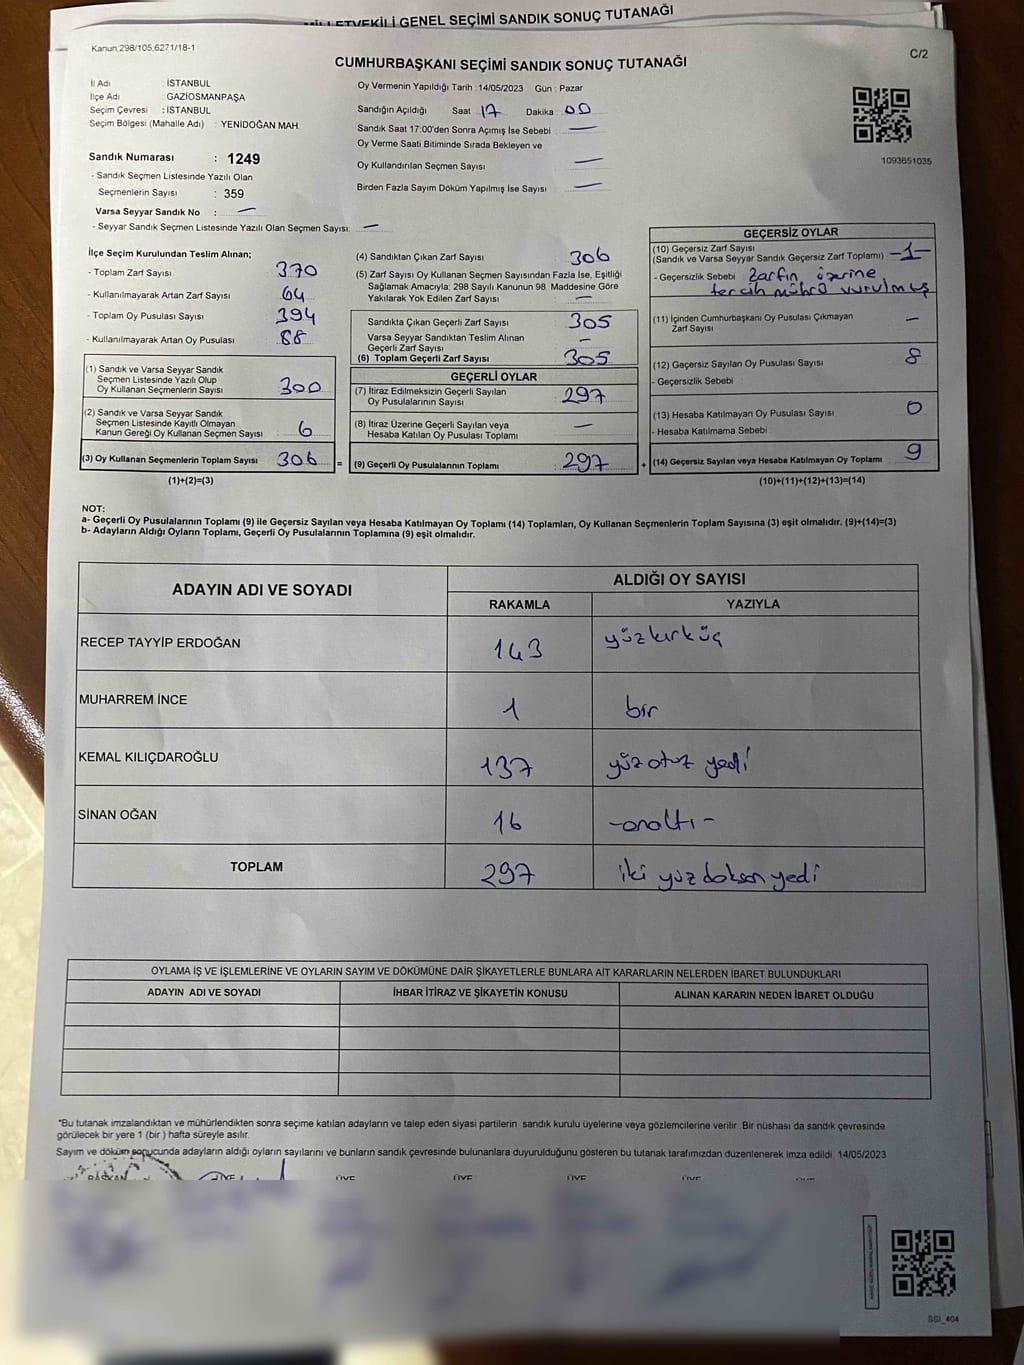 MİLLETVEKİLİ GENEL SEÇİMİ SANDIK SONUÇ TUTANAĞI
Kanun 298/105,6271/18-1
CUMHURBAŞKANI SEÇİMİ SANDIK SONUÇ TUTANAĞI
C/2
İl Adı : İSTANBUL
İlçe Adı : GAZİOSMANPAŞA
Seçim Çevresi : İSTANBUL
Seçim Bölgesi (Mahalle Adı) : YENİDOĞAN MAH.
Sandık Numarası : 1249
- Sandık Seçmen Listesinde Yazılı Olan
Seçmenlerin Sayısı : 359
Varsa Seyyar Sandık No : —
- Seyyar Sandık Seçmen Listesinde Yazılı Olan Seçmen Sayısı: —
Oy Vermenin Yapıldığı Tarih : 14/05/2023 Gün : Pazar
Sandığın Açıldığı Saat 17 Dakika : 00
Sandık Saat 17:00'den Sonra Açımış İse Sebebi —
Oy Verme Saati Bitiminde Sırada Bekleyen ve
Oy Kullandırılan Seçmen Sayısı —
Birden Fazla Sayım Döküm Yapılmış İse Sayısı —
1093651035
İlçe Seçim Kurulundan Teslim Alınan;
- Toplam Zarf Sayısı 370
- Kullanılmayarak Artan Zarf Sayısı 64
- Toplam Oy Pusulası Sayısı 394
- Kullanılmayarak Artan Oy Pusulası 88
(1) Sandık ve Varsa Seyyar Sandık
Seçmen Listesinde Yazılı Olup
Oy Kullanan Seçmenlerin Sayısı 300
(2) Sandık ve Varsa Seyyar Sandık
Seçmen Listesinde Kayıtlı Olmayan
Kanun Gereği Oy Kullanan Seçmen Sayısı 6
(3) Oy Kullanan Seçmenlerin Toplam Sayısı 306
(1)+(2)=(3)
(4) Sandıktan Çıkan Zarf Sayısı 306
(5) Zarf Sayısı Oy Kullanan Seçmen Sayısından Fazla İse, Eşitliği
Sağlamak Amacıyla; 298 Sayılı Kanunun 98. Maddesine Göre
Yakılarak Yok Edilen Zarf Sayısı —
Sandıkta Çıkan Geçerli Zarf Sayısı 305
Varsa Seyyar Sandıktan Teslim Alınan
Geçerli Zarf Sayısı —
(6) Toplam Geçerli Zarf Sayısı 305
GEÇERLİ OYLAR
(7) İtiraz Edilmeksizin Geçerli Sayılan
Oy Pusulalarının Sayısı 297
(8) İtiraz Üzerine Geçerli Sayılan veya
Hesaba Katılan Oy Pusulası Toplamı —
= (9) Geçerli Oy Pusulalarının Toplamı 297 +
GEÇERSİZ OYLAR
(10) Geçersiz Zarf Sayısı
(Sandık ve Varsa Seyyar Sandık Geçersiz Zarf Toplamı) -1-
- Geçersizlik Sebebi Zarfın üzerine
tercih mührü vurulmuş
(11) İçinden Cumhurbaşkanı Oy Pusulası Çıkmayan
Zarf Sayısı —
(12) Geçersiz Sayılan Oy Pusulası Sayısı 8
- Geçersizlik Sebebi
(13) Hesaba Katılmayan Oy Pusulası Sayısı 0
- Hesaba Katılmama Sebebi
(14) Geçersiz Sayılan veya Hesaba Katılmayan Oy Toplamı 9
(10)+(11)+(12)+(13)=(14)
NOT:
a- Geçerli Oy Pusulalarının Toplamı (9) ile Geçersiz Sayılan veya Hesaba Katılmayan Oy Toplamı (14) Toplamları, Oy Kullanan Seçmenlerin Toplam Sayısına (3) eşit olmalıdır. (9)+(14)=(3)
b- Adayların Aldığı Oyların Toplamı, Geçerli Oy Pusulalarının Toplamına (9) eşit olmalıdır.
ADAYIN ADI VE SOYADI ALDIĞI OY SAYISI
RAKAMLA YAZIYLA
RECEP TAYYİP ERDOĞAN 143 yüzkırküç
MUHARREM İNCE 1 bir
KEMAL KILIÇDAROĞLU 137 yüzotuz yedi
SİNAN OĞAN 16 -onaltı-
TOPLAM 297 iki yüz doksan yedi
OYLAMA İŞ VE İŞLEMLERİNE VE OYLARIN SAYIM VE DÖKÜMÜNE DAİR ŞİKAYETLERLE BUNLARA AİT KARARLARIN NELERDEN İBARET BULUNDUKLARI
ADAYIN ADI VE SOYADI İHBAR İTİRAZ VE ŞİKAYETİN KONUSU ALINAN KARARIN NEDEN İBARET OLDUĞU
*Bu tutanak imzalandıktan ve mühürlendikten sonra seçime katılan adayların ve talep eden siyasi partilerin sandık kurulu üyelerine veya gözlemcilerine verilir. Bir nüshası da sandık çevresinde
görülecek bir yere 1 (bir) hafta süreyle asılır.
Sayım ve döküm sonucunda adayların aldığı oyların sayılarını ve bunların sandık çevresinde bulunanlara duyurulduğunu gösteren bu tutanak tarafımızdan düzenlenerek imza edildi. 14/05/2023
BAŞKAN ÜYE ÜYE ÜYE ÜYE ÜYE ÜYE
SSI_404